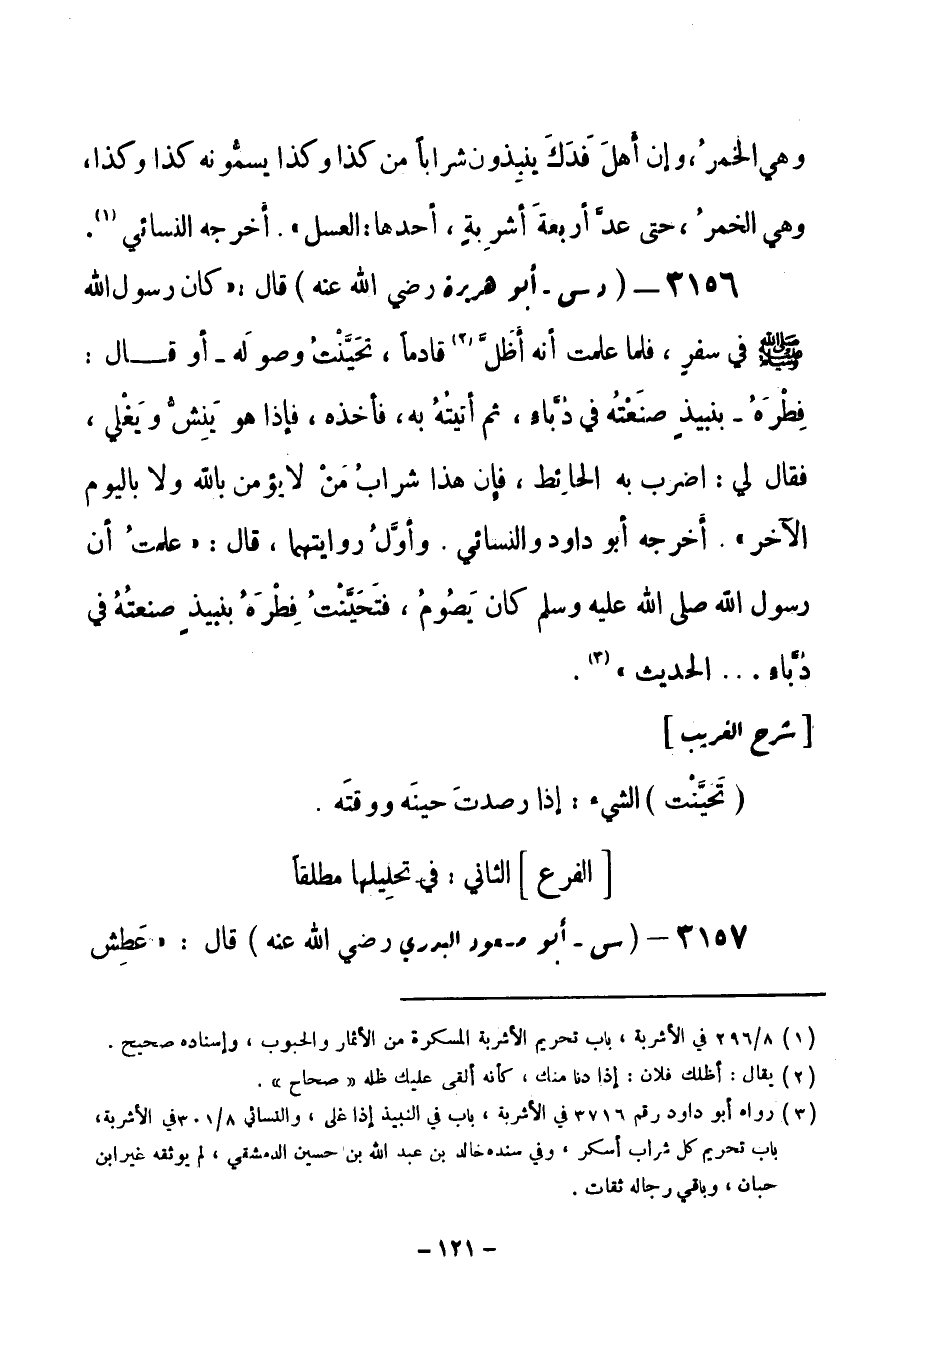 وهي الخمرُ، وإن أهلَ فَدَكَ ينبِذون شراباً من كذا وكذا يسمُّونه كذا وكذا،
وهي الخمرُ، حتى عدَّ أربعةَ أشرِبةٍ، أحدها: العسل». أخرجه النسائي (١).
٣١٥٦ – ( د س - أبو هريرة رضي الله عنه ) قال: «كان رسول الله
ﷺ في سفرٍ، فلما علمت أنه أظلَّ (٢) قادماً، تحَيَّنْتُ وصولَه - أو قـــال:
فِطْرَهُ - بنبيذٍ صنَعْتُه في دُبَّاءِ، ثم أتيتُه به، فأخذه، فإذا هو يَنِشُّ ويَغْلي،
فقال لي: اضرب به الحائِط، فإن هذا شرابُ مَنْ لا يؤمن بالله ولا باليوم
الآخر». أخرجه أبو داود والنسائي. وأوَّلُ روايتهما، قال: «علمتُ أن
رسول الله صلى الله عليه وسلم كان يَصُومُ، فتَحَيَّنْتُ فِطْرَهُ بنبيذٍ صنعتُهُ في
دُبَّاء ... الحديث» (٣).
[ شرح الغريب ]
( تَحَيَّنْت ) الشيء: إذا رصدتَ حينَه ووقتَه.
[ الفرع ] الثاني: في تحليلها مطلقاً
٣١٥٧ – ( س - أبو مسعود البدري رضي الله عنه ) قال: «عَطِش
(١) ٢٩٦/٨ في الأشربة، باب تحريم الأشربة المسكرة من الأثمار والحبوب، وإسناده صحيح.
(٢) يقال: أظلك فلان: إذا دنا منك، كأنه ألقى عليك ظله «صحاح».
(٣) رواه أبو داود رقم ٣٧١٦ في الأشربة، باب في النبيذ إذا غلى، والنسائي ٣٠١/٨ في الأشربة،
باب تحريم كل شراب أسكر، وفي سنده خالد بن عبد الله بن حسين الدمشقي، لم يوثقه غير ابن
حبان، وباقي رجاله ثقات.
– ١٢١ –